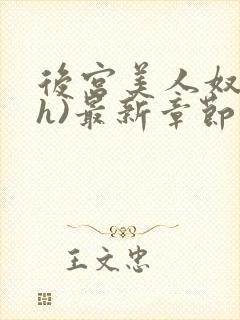 後宮美人奴
h)最新章節
王文忠